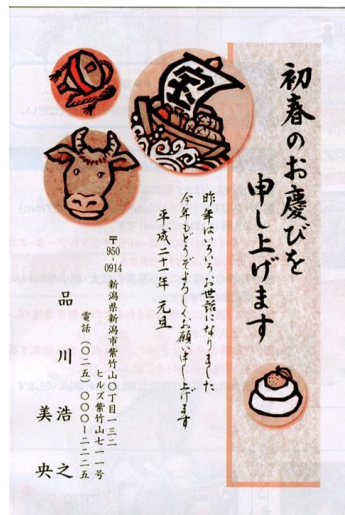 初春のお慶びを
申し上げます
昨年はいろいろお世話になりました
今年もどうぞよろしくお願い申し上げます
平成二十一年 元旦
〒950-0914 新潟県新潟市紫竹山〇丁目一三二
ヒルズ紫竹山七一一号
電話(〇二五)〇〇〇ー二二二五
品川 浩之
美央
宝